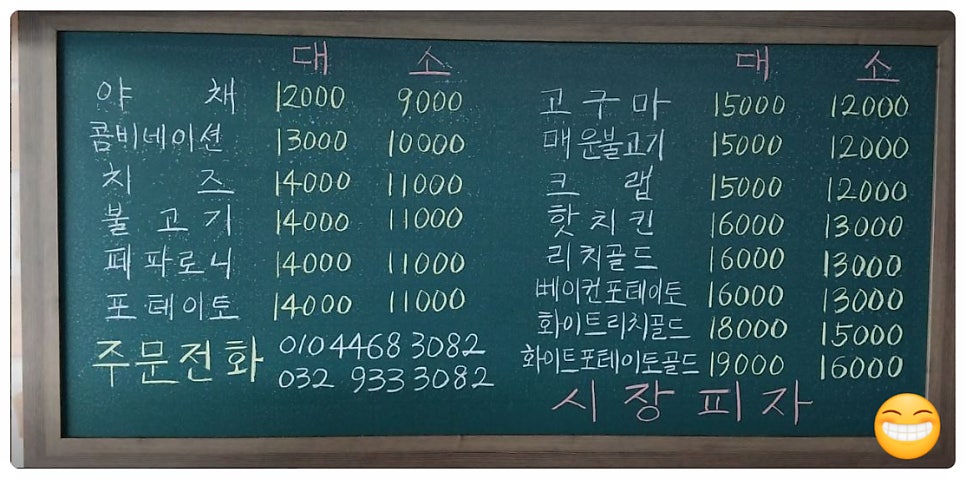 대 소
야 채 12000 9000
콤비네이션 13000 10000
치 즈 14000 11000
불 고 기 14000 11000
페 파 로 니 14000 11000
포 테 이 토 14000 11000
주문전화 010 4468 3082
032 933 3082
대 소
고 구 마 15000 12000
매운불고기 15000 12000
크 랩 15000 12000
핫 치 킨 16000 13000
리치골드 16000 13000
베이컨포테이토 16000 13000
화이트리치골드 18000 15000
화이트포테이토골드 19000 16000
시 장 피 자